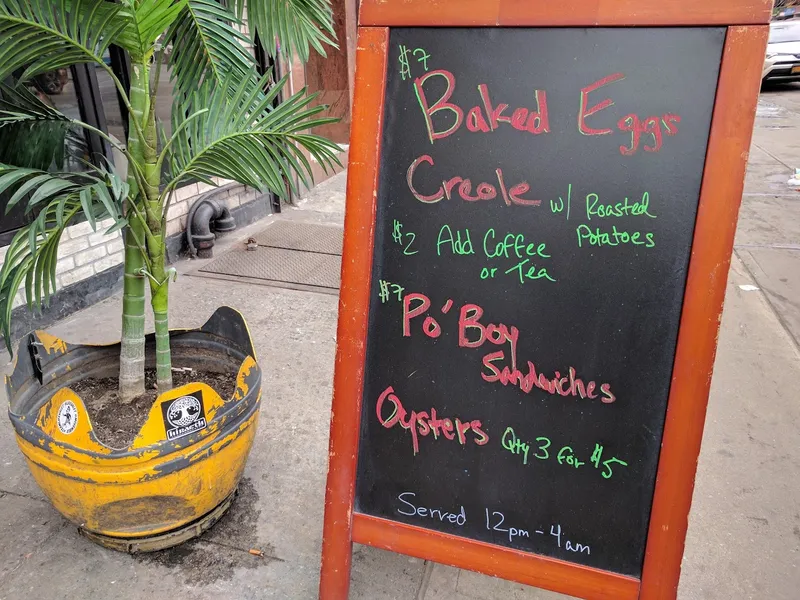 $7
Baked Eggs
Creole w/ Roasted
Potatoes
$2 Add Coffee
or Tea
$7 Po' Boy
Sandwiches
Oysters Qty 3 for $5
Served 12pm - 4am